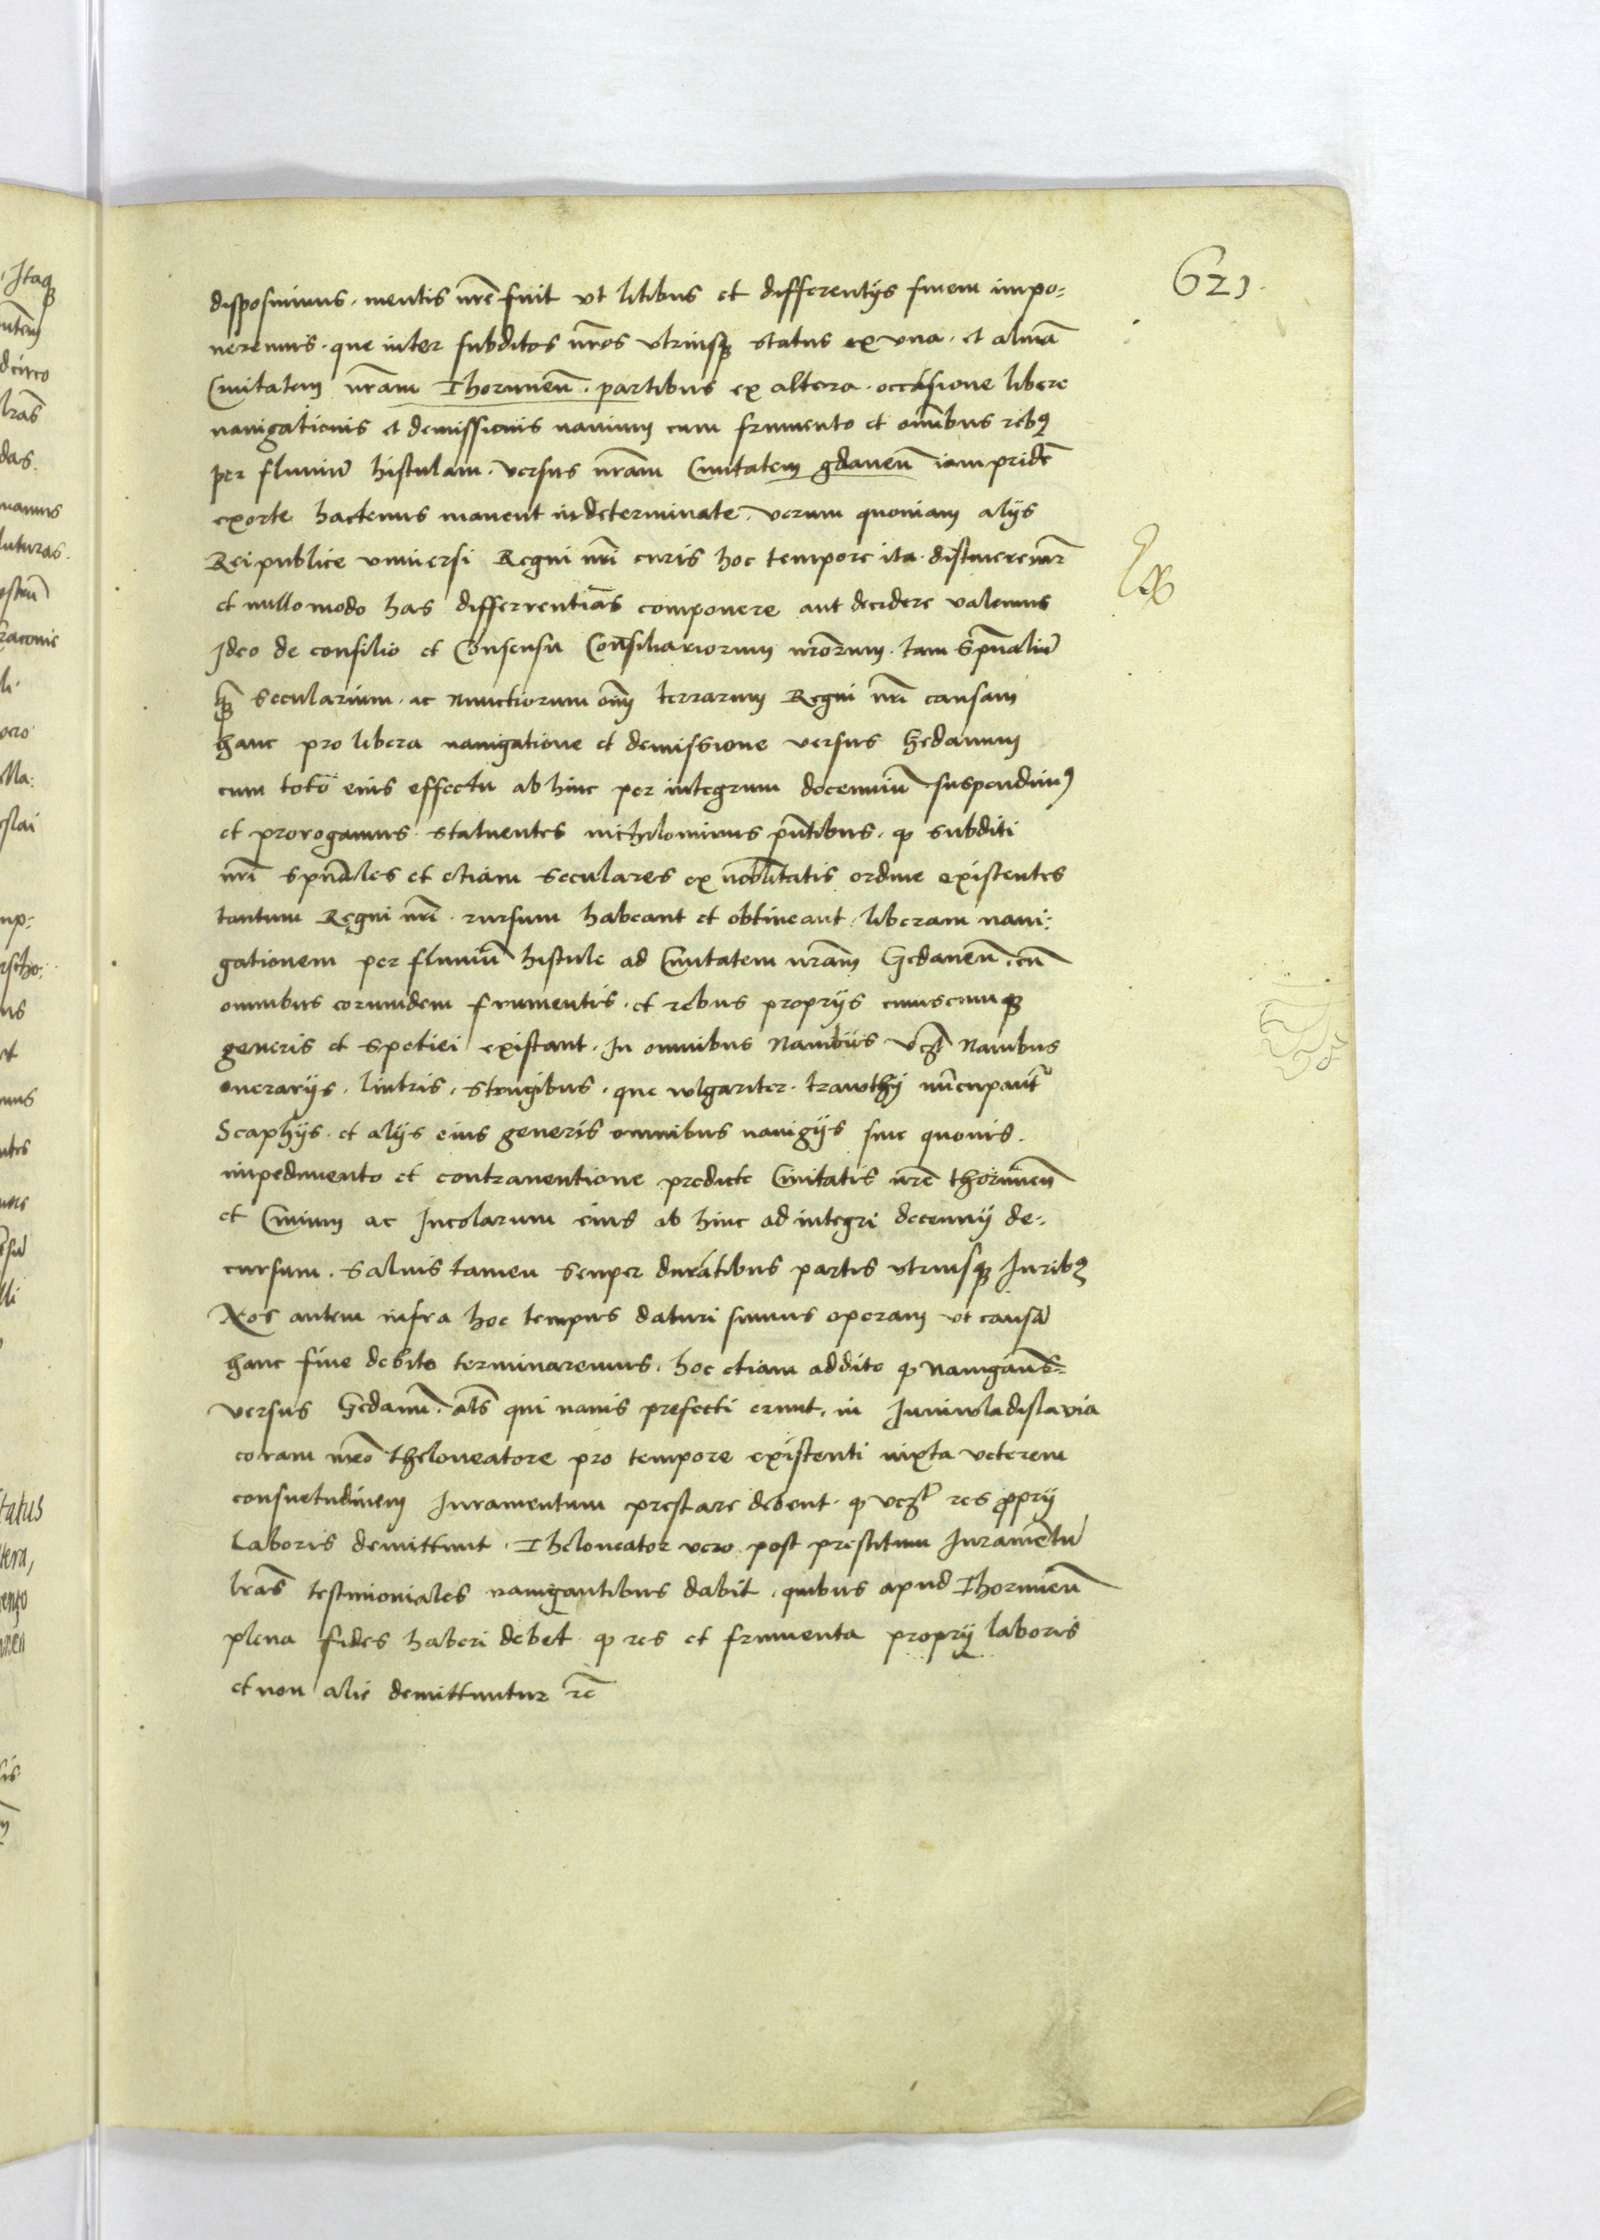 621.
disposuimus. mentis nr̄e fuit vt litibus et differentijs finem impo-
neremus. que inter subditos nr̄os vtriusq; status ex vna. et almā
Ciuitatem nr̄am Thorunien̄. partibus ex altera. occasione libere
nauigationis et demissionis nauium cum frumento et omībus rebꝰ
per fluuiū histulam. versus nr̄am Ciuitatem gdanen̄ iam pridē
exorte hactenus manent indeterminate. verum quoniam alijs
Reipublice vniuersi Regni nr̄i curis hoc tempore ita distineremur
et nullo modo has differrentias componere aut decidere valemus
Ideo de consilio et Consensu Consiliariorum nr̄orum. tam spūaliū
q̄ꝫ secularium. ac Nunctiorum oīm terrarum Regni nr̄i causam
hanc pro libera nauigatione et demissione versus Gedanum
cum toto eius effectu ab hinc per integrum decenniū suspendimꝰ
et prorogamus. statuentes nichilominus pn̄tibus. ꝙ subditi
nr̄i spūales et etiam seculares ex nobilitatis ordine existentes
tantum Regni nr̄i. rursum habeant et obtineant. liberam naui-
gationem per fluuiū histule ad Ciuitatem nr̄am Gedanen̄. cū
omnibus eorumdem frumentis. et rebus proprijs cuiuscunq;
generis et spetiei existant. In omnibus Nauibus vꝫ Nauibus
onerarijs. lintris. strugibus. que wlgariter. trawthy nūcupant̄
Scaphijs. et alijs eius generis omnibus nauigijs sine quouis.
impedimento et contrauentione predicte Ciuitatis nr̄e thorunien̄
et Ciuium ac Incolarum eius ab hinc ad integri decennij de-
cursum. saluis tamen semper durātibus partis vtriusq; Iuribꝰ
Nos autem infra hoc tempus daturi sumus operam vt causā
hanc fine debito terminaremus. hoc etiam addito ꝙ nauigan̄s
versus Gedanū. al̄s qui nauis prefecti erunt. in Juniwladislavia
coram nr̄o theloneatore pro tempore existenti iuxta veterem
consuetudinem Iuramentum prestare debent. ꝙ vꝫ res ꝓprij
laboris demittunt. Theloneator vero post prestitum Iuramētū
lr̄as testimoniales nauigantibus dabit. quibus apud Thorunien̄
plena fides haberi debet. ꝙ res et frumenta proprij laboris
et non alie demittuntur rē